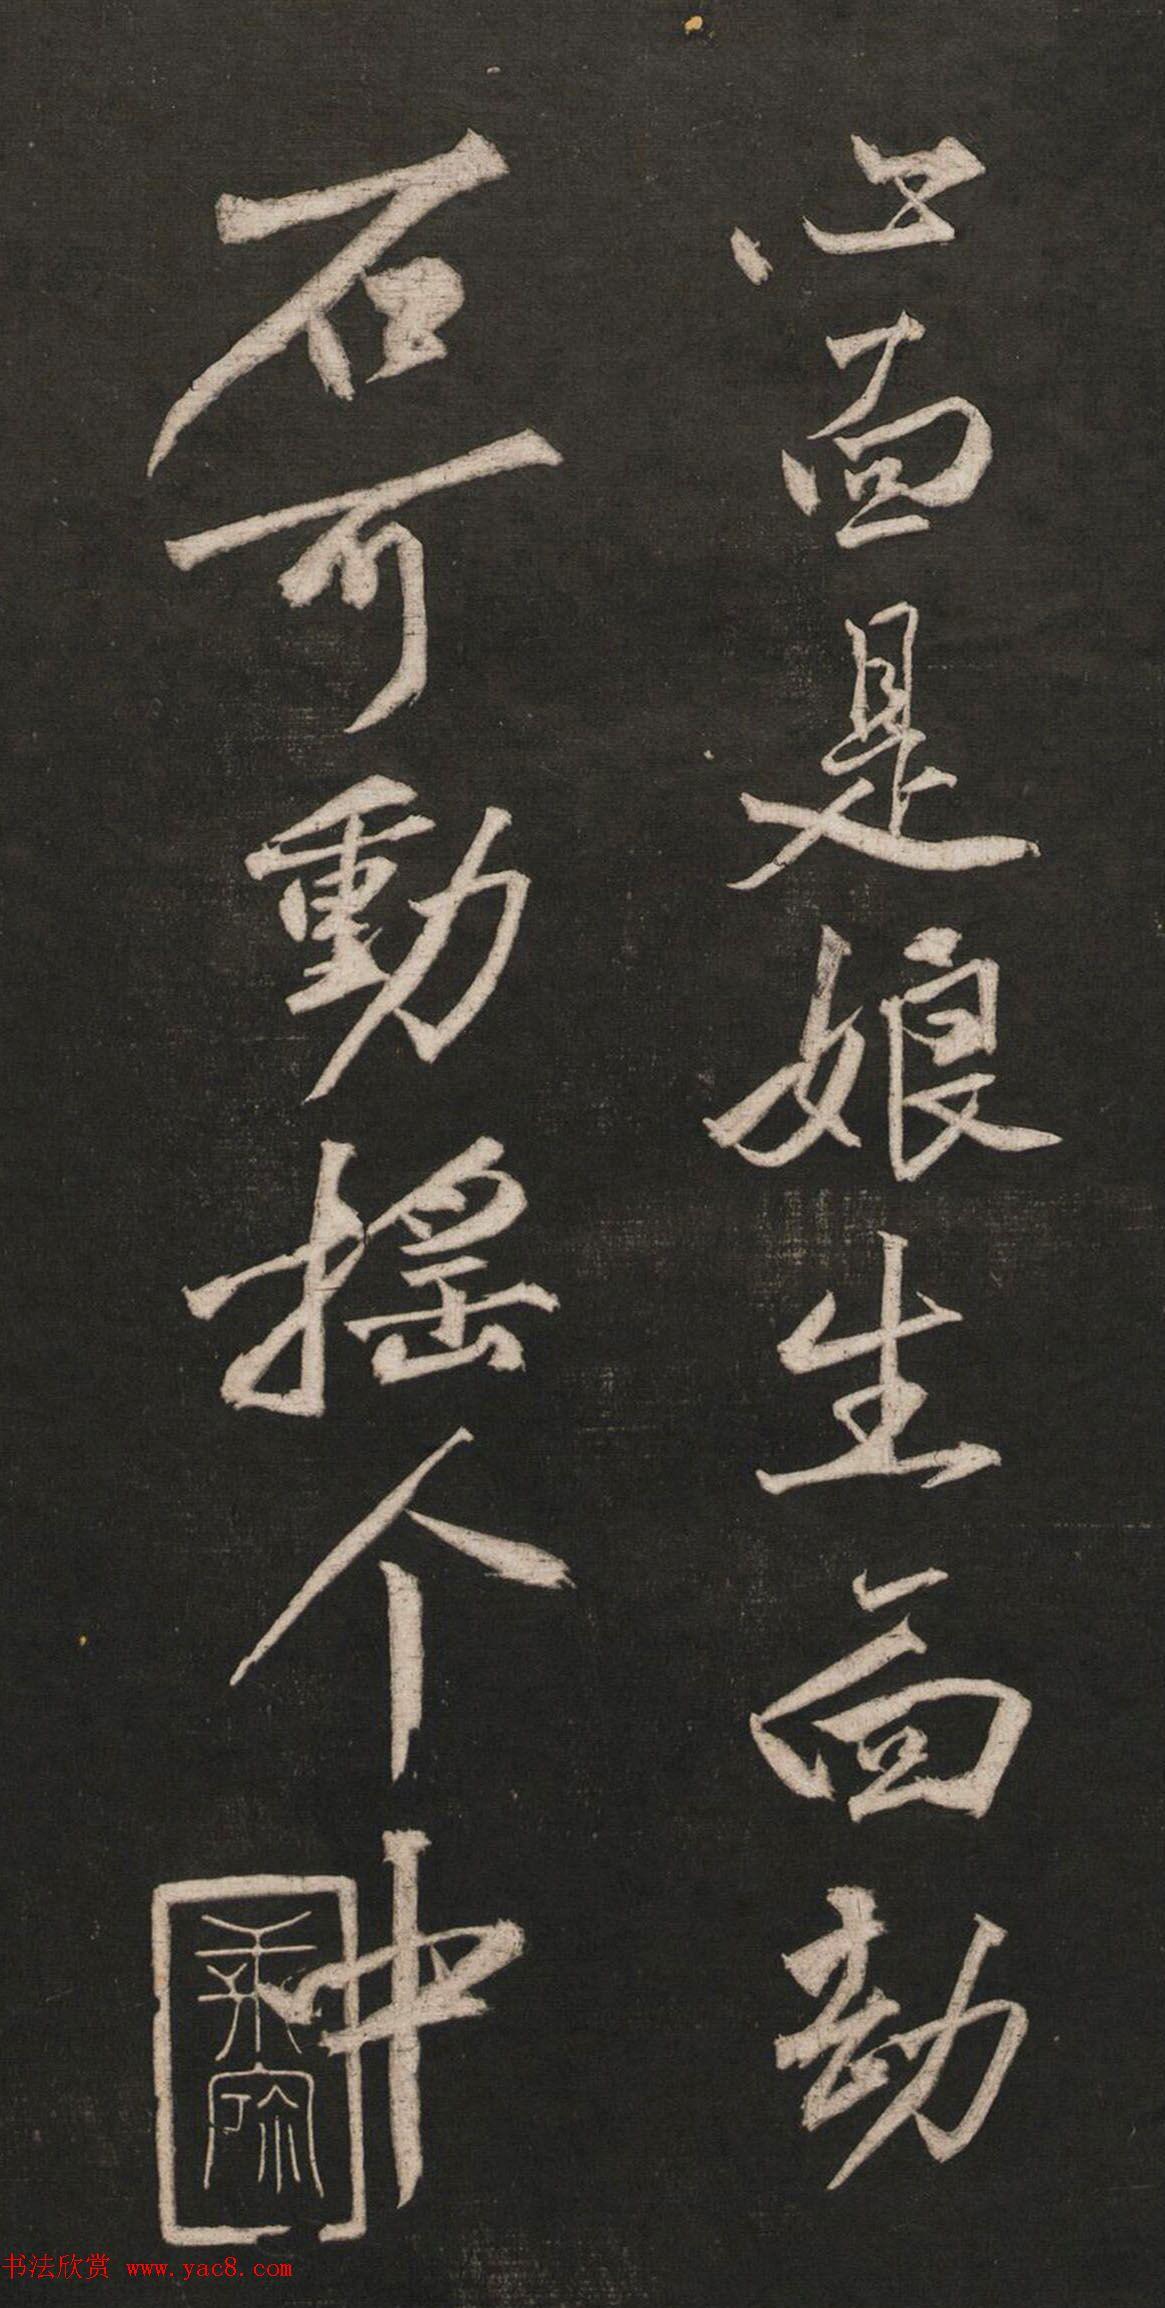 面是娘生面劫
石可動搖个中
书法欣赏 www.yac8.com